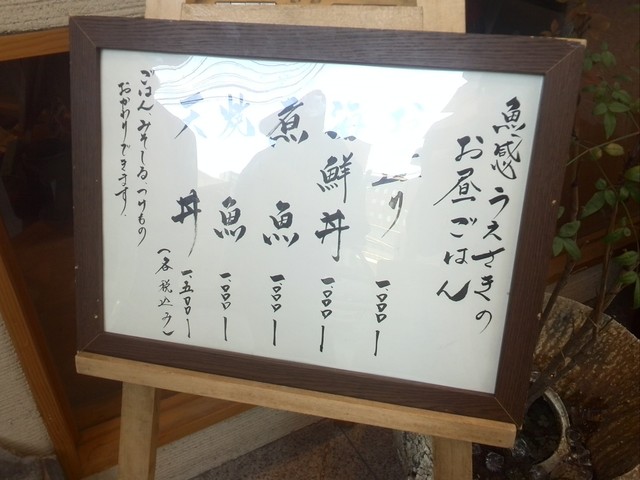 魚感 うえさきの
お昼ごはん
り 一.〇〇〇ー
海鮮丼 一.〇〇〇ー
煮魚 一.〇〇〇ー
焼魚 一.〇〇〇ー
天丼 一.五〇〇ー
(各税込み)
ごはん、みそしる、つけもの
おかわりできます。